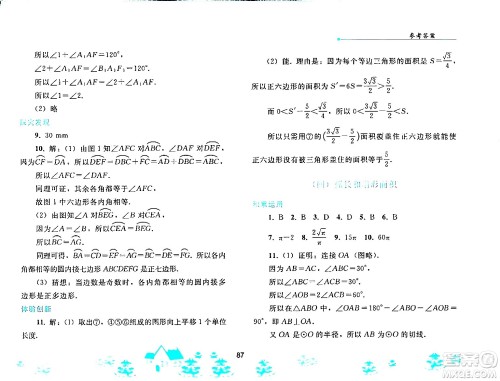 参考答案
所以∠1+∠A₁AF=120°,
∠2+∠A₁AF=∠B₁A₁F₁=120°.
所以∠1=∠2.
(2) 略
探究发现
9. 30 mm
10. 解: (1) 由图 1 知∠AFC 对ABC, ∠DAF 对DEF,
同理可证, 其余各角都等于∠AFC,
故图 1 中六边形各角相等.
(2) 因为∠A 对BEG, ∠B 对CEA,
又因为∠A=∠B, 所以BEG=CEA.
所以BC=AG.
同理可得, AB=CD=EF=AG=BC=DE=FG, 所以各内角都相等的圆内接七边形 ABCDEFG 是正七边形.
(3) 猜想: 当边数是奇数时, 各内角都相等的圆内接多边形是正多边形.
体验创新
11. 解: (1) 取出⑦, ④⑤⑥组成的图形向上平移 1 个单位长度.
(2) 能. 理由是: 因为每个等边三角形的面积是 S=√3/4,
所以正六边形的面积为 S′=6S=3√3/2>5/2,
而 0<S′-5/2=3√3/2-5/2<√3/4,
所以只需用⑦的 (3√3/2-5/2) 面积覆盖住正六边形就能使正六边形没有被三角形盖住的面积等于5/2.
知能运用
1. B 2. B 3. D 4. D 5. B 6. B
7. π-2 8. 2√π/π 9. 15π 10. 60π
11. (1) 证明: 连接 OA (图略).
因为∠ABC=30°,
所以∠ABC=∠ACB=30°.
因为∠OAC=∠ACB=30°,
所以∠OAB=180°-30°-30°-30°=90°,
即 AB⊥OA.
又 OA 是⊙O 的半径, 所以 AB 为⊙O 的切线.
87